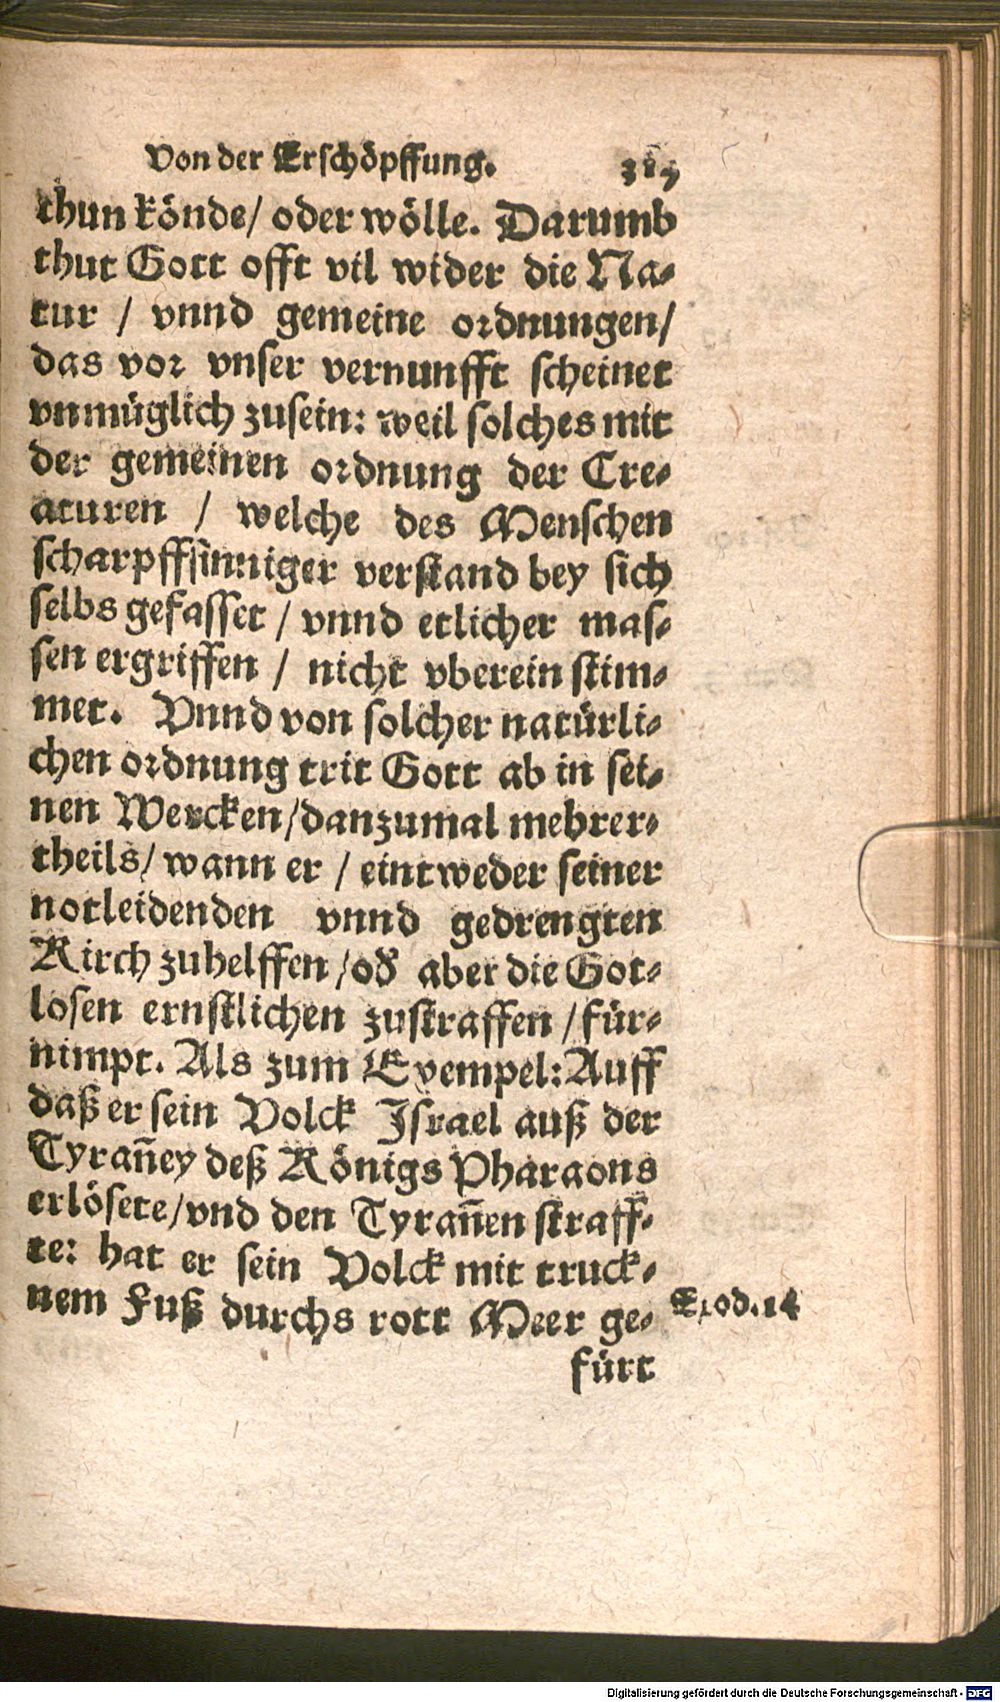 Von der Erschöpffung.
thun könde/ oder wölle. Darumb
thut Gott offt vil wider die Na-
tur / vnnd gemeine ordnungen/
das vor vnser vernunfft scheinet
vnmüglich zusein: weil solches mit
der gemeinen ordnung der Cre-
aturen / welche des Menschen
scharpffsinniger verstand bey sich
selbs gefasset / vnnd etlicher mas-
sen ergriffen / nicht vberein stim-
met. Vnnd von solcher natürli-
chen ordnung trit Gott ab in sei-
nen Wercken/danzumal mehrer-
theils/ wann er / eintweder seiner
notleidenden vnnd gedrengten
Kirch zuhelffen/od aber die Got-
losen ernstlichen zustraffen/für-
nimpt. Als zum Exempel: Auff
daß er sein Volck Israel auß der
Tyrañey deß Königs Pharaons
erlösete/vnd den Tyrañen straff-
te: hat er sein Volck mit truck-
nem Fuß durchs rott Meer ge-
Exod.14
fürt
Digitalisierung gefördert durch die Deutsche Forschungsgemeinschaft - DFG